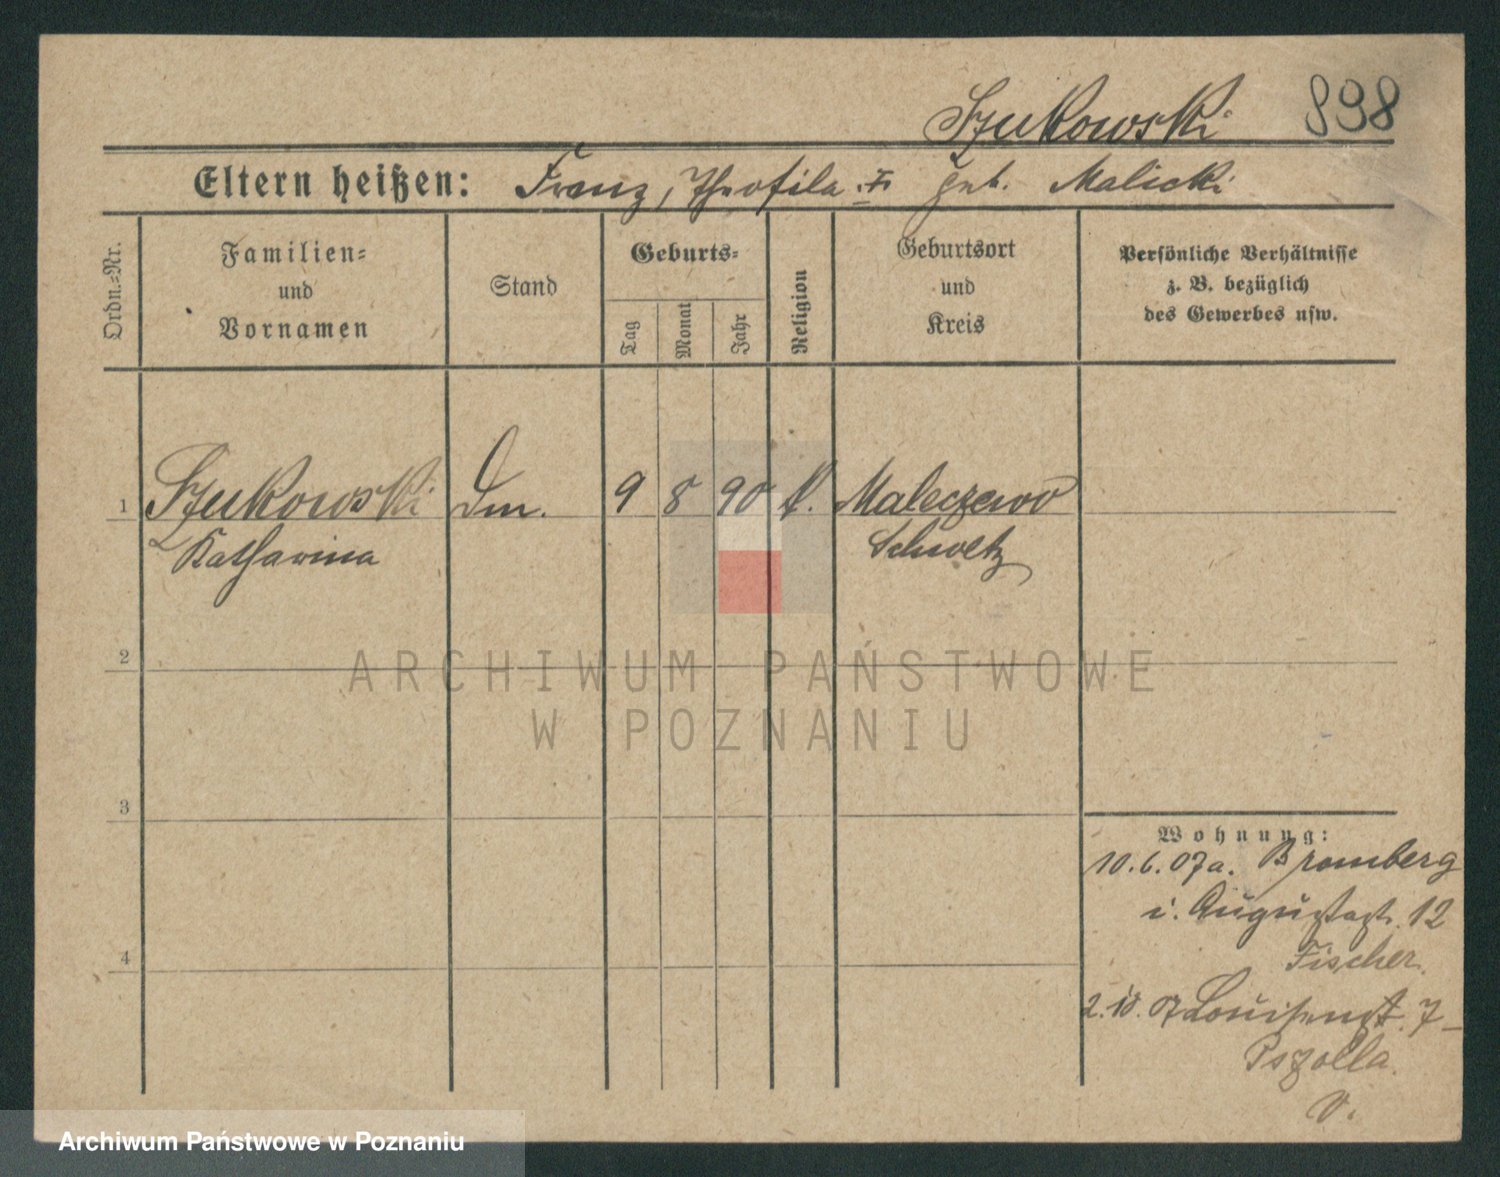 Szukowski 898
Eltern heißen: Franz, Theofila geb. Malicki
Ordn.=Nr.
Familien=
und
Vornamen
Stand
Geburts=
Tag
Monat
Jahr
Religion
Geburtsort
und
Kreis
Persönliche Verhältnisse
z. B. bezüglich
des Gewerbes usw.
1 Szukowski Dm. 9 8 90 k. Maleczewo
Katharina Schwetz
2
3
4
Wohnung:
10.6.07 a. Bromberg
i. Augustast. 12
Fischer.
2.10.07 Louisenst. 7
Pszolla.
V.
ARCHIWUM PAŃSTWOWE
W POZNANIU
Archiwum Państwowe w Poznaniu